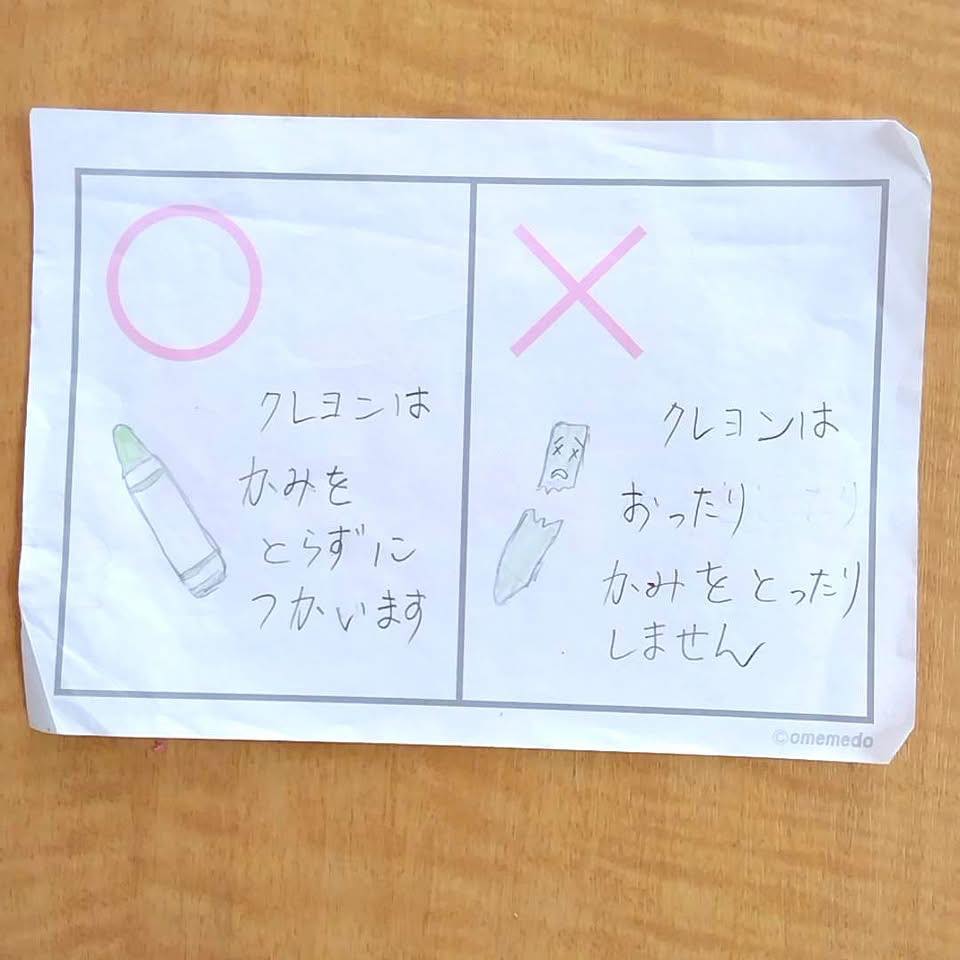 クレヨンは
かみを
とらずに
つかいます
クレヨンは
おったり
かみをとったり
しません
©omemedo